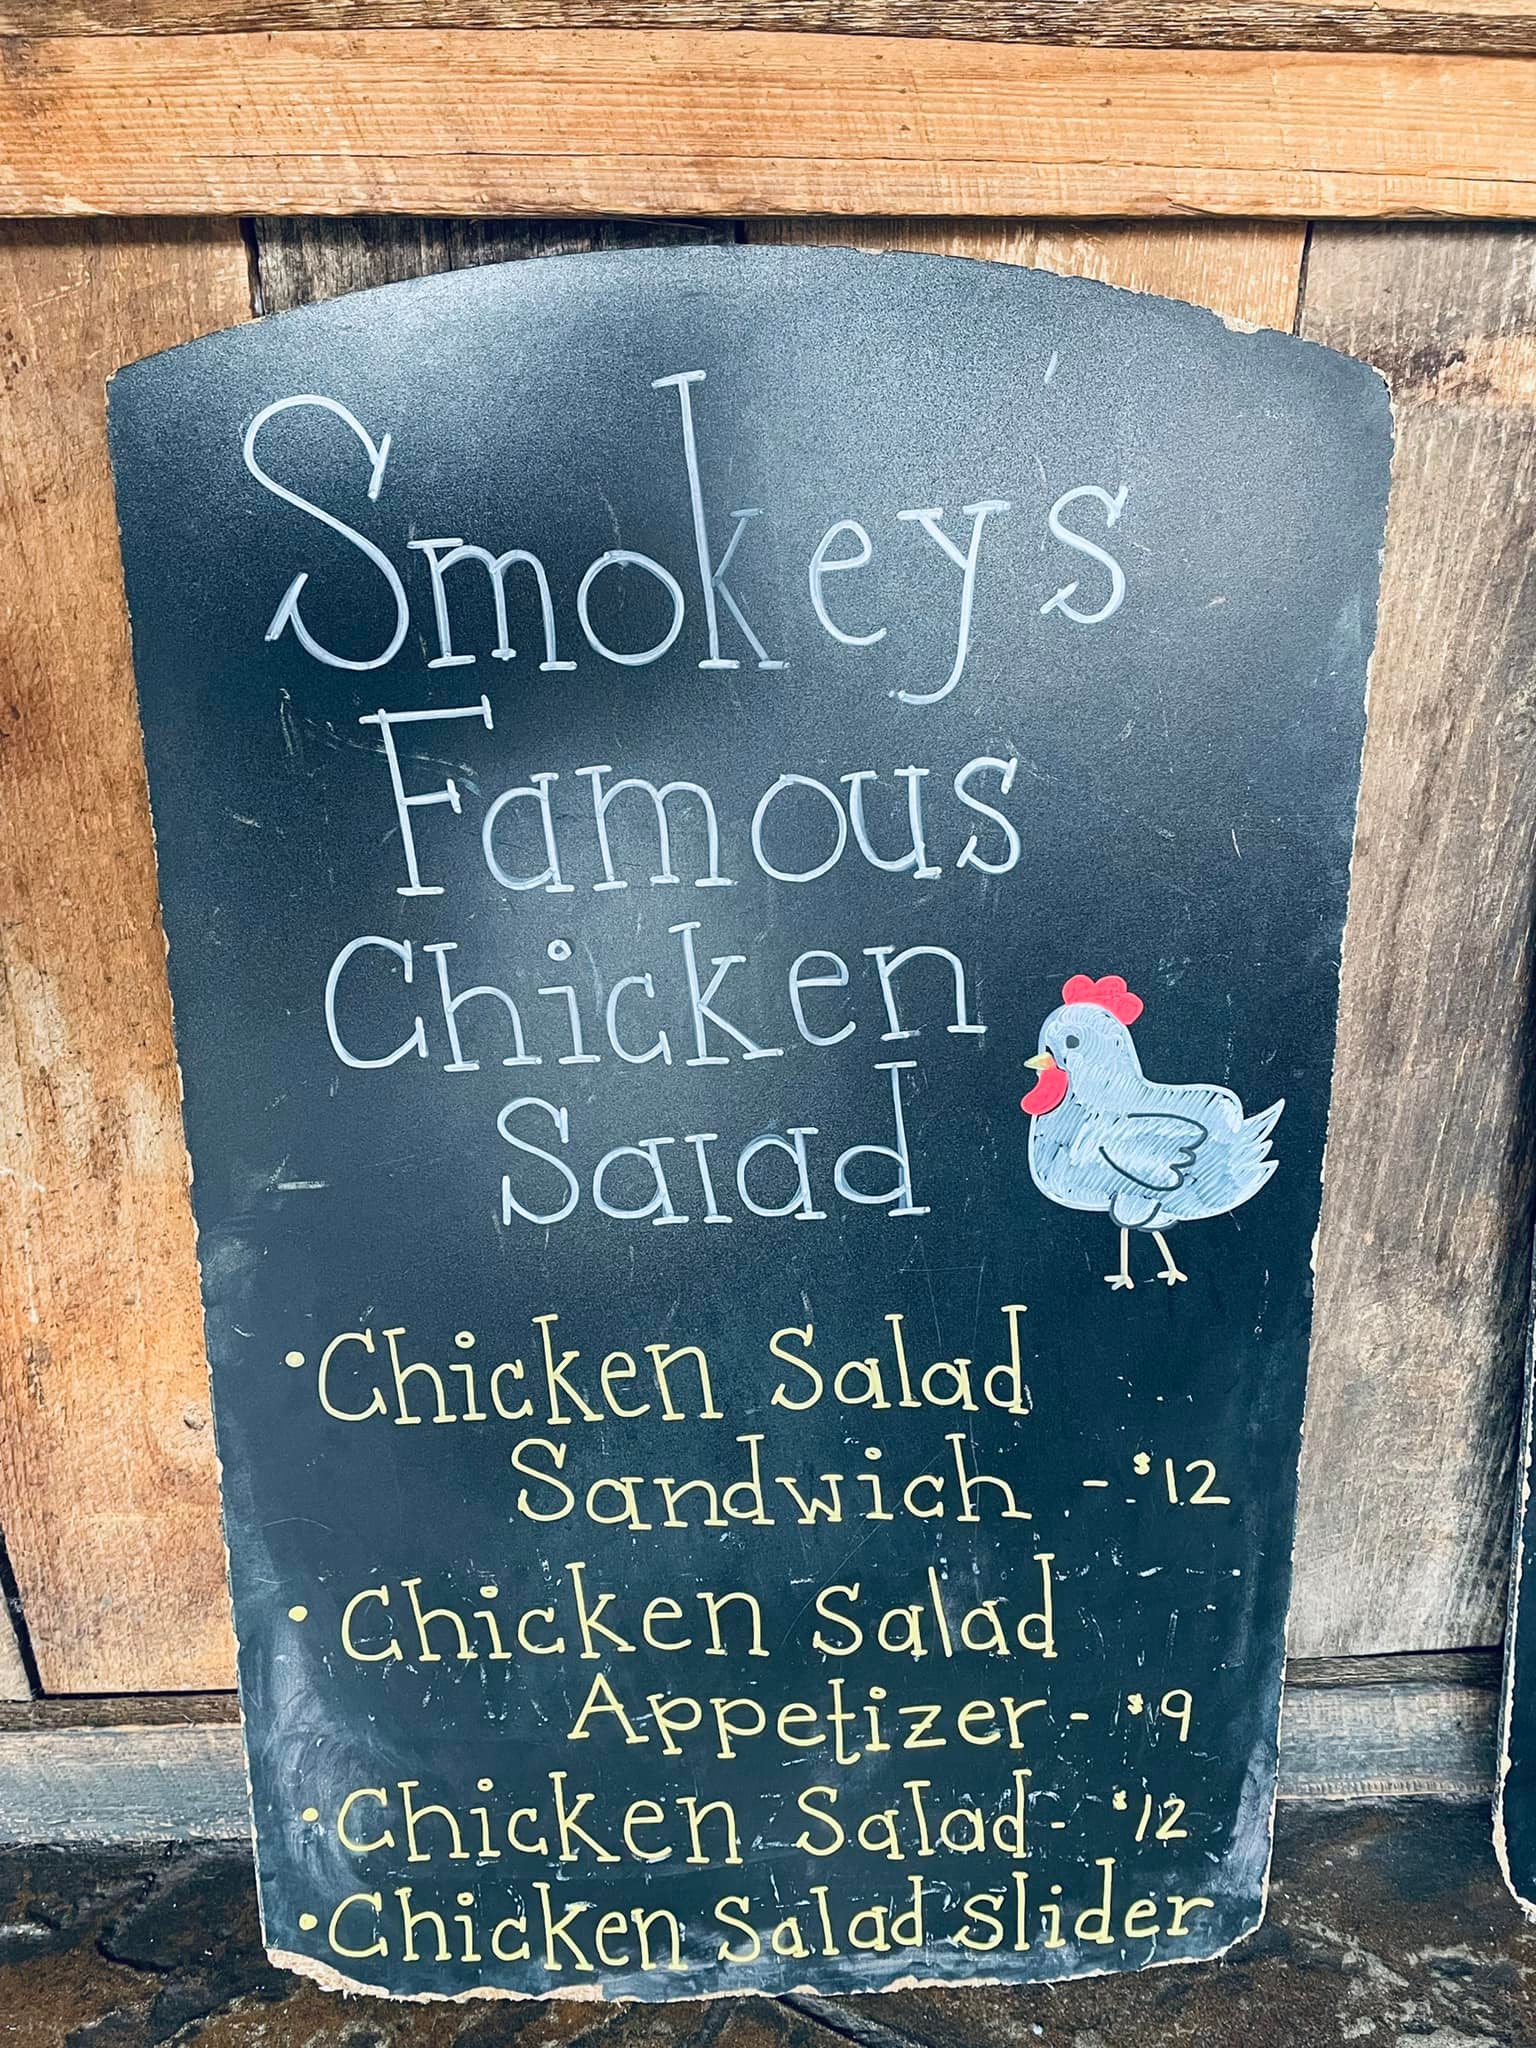 Smokey's
Famous
Chicken
Salad
• Chicken Salad
Sandwich - $12
• Chicken Salad
Appetizer - $9
• Chicken Salad - $12
• Chicken Salad Slider